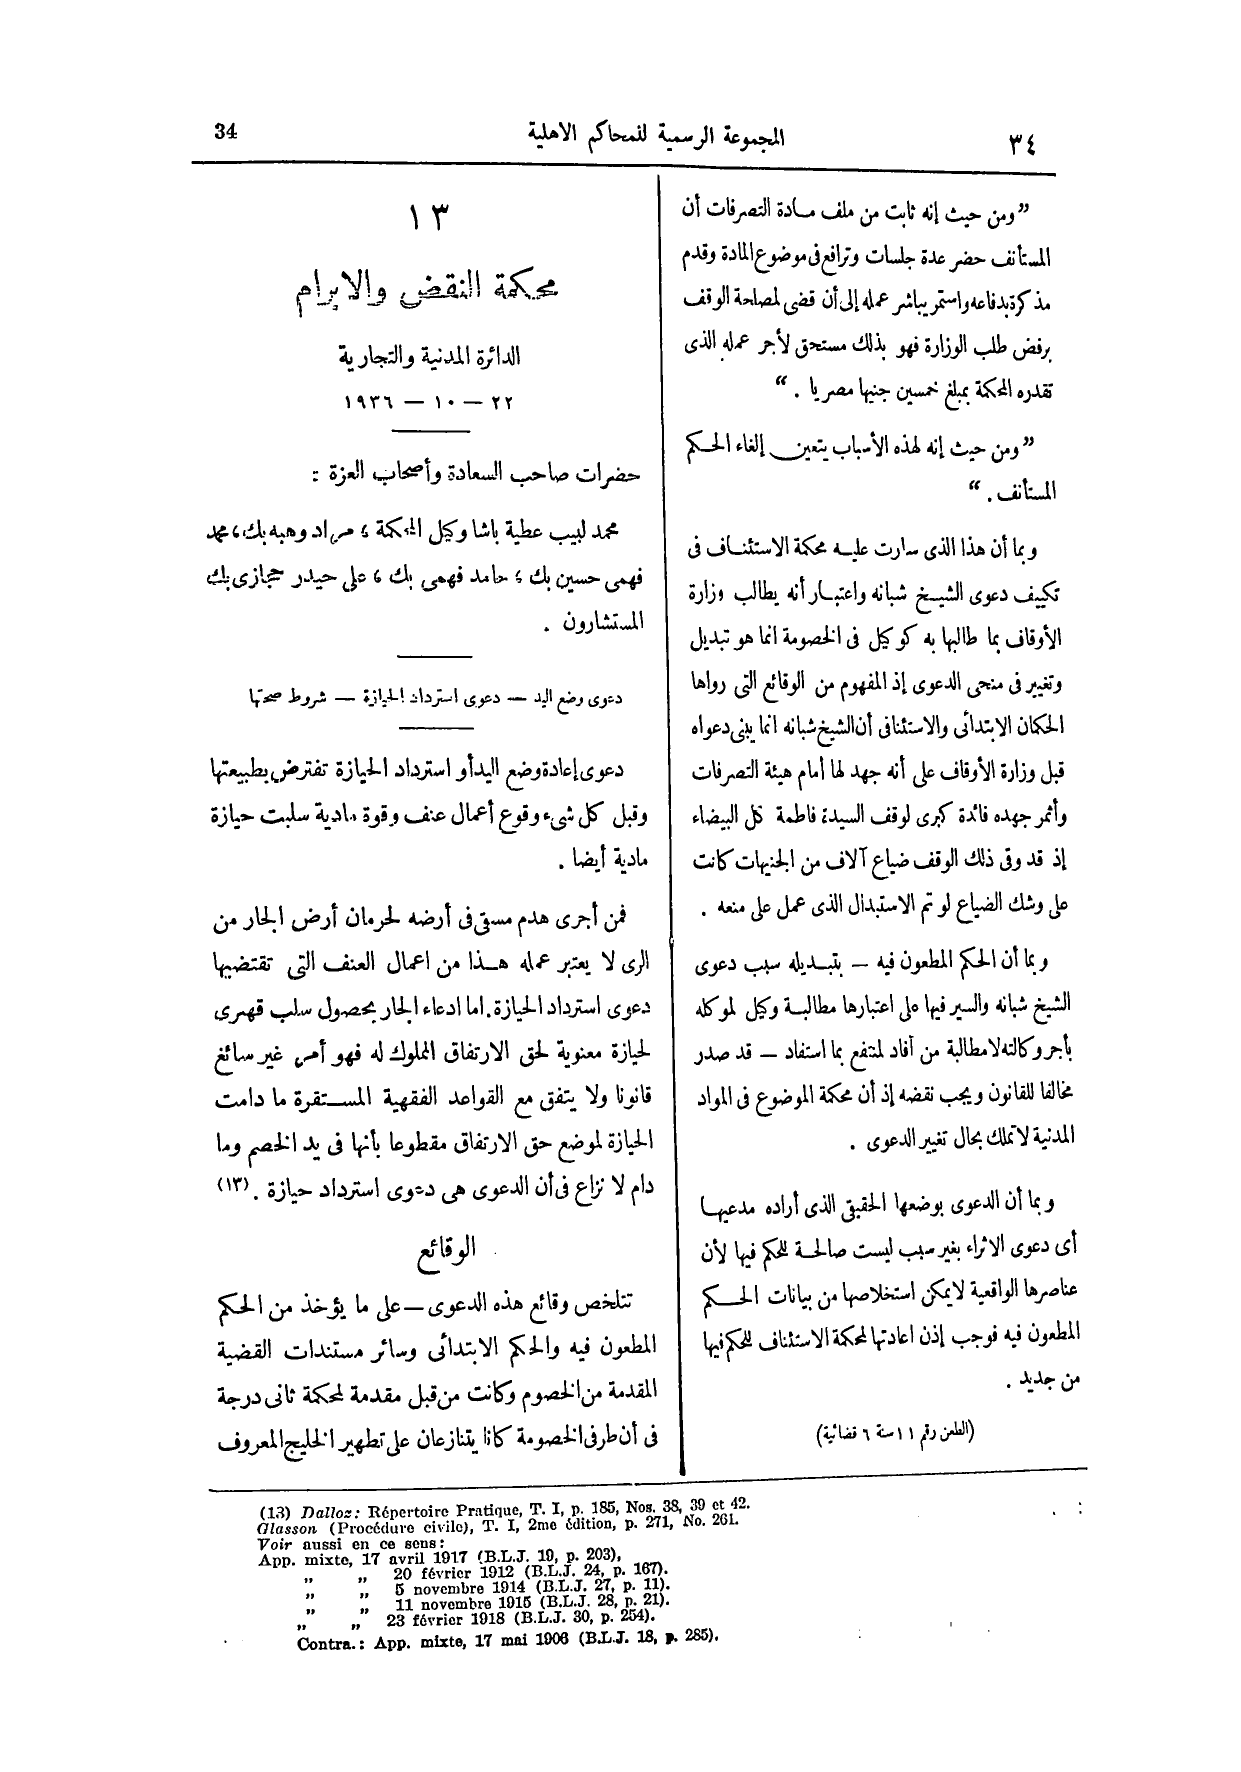 ٣٤ المجموعة الرسمية للمحاكم الاهلية 34
”ومن حيث إنه ثابت من ملف مادة التصرفات أن
المستأنف حضر عدة جلسات وترافع فى موضوع المادة وقدم
مذكرة بدفاعه واستمر يباشر عمله إلى أن قضى لمصلحة الوقف
برفض طلب الوزارة فهو بذلك مستحق لأجر عمله الذى
تقدره المحكمة بمبلغ خمسين جنيها مصريا . “
”ومن حيث إنه لهذه الأسباب يتعين إلغاء الحكم
المستأنف . “
وبما أن هذا الذى سارت عليه محكمة الاستئناف فى
تكييف دعوى الشيخ شبانه واعتبار أنه يطالب وزارة
الأوقاف بما طالبها به كوكيل فى الخصومة انما هو تبديل
وتغيير فى منحى الدعوى إذ المفهوم من الوقائع التى رواها
الحكمان الابتدائى والاستئنافى أن الشيخ شبانه انما يبنى دعواه
قبل وزارة الأوقاف على أنه جهد لها أمام هيئة التصرفات
وأثمر جهده فائدة كبرى لوقف السيدة فاطمة كل البيضاء
إذ قد وقى ذلك الوقف ضياع آلاف من الجنيهات كانت
على وشك الضياع لو تم الاستبدال الذى عمل على منعه .
وبما أن الحكم المطعون فيه – بتبديله سبب دعوى
الشيخ شبانه والسير فيها على اعتبارها مطالبة وكيل لموكله
بأجر وكالته لا مطالبة من أفاد لمنتفع بما استفاد – قد صدر
مخالفا للقانون ويجب نقضه إذ أن محكمة الموضوع فى المواد
المدنية لا تملك بحال تغيير الدعوى .
وبما أن الدعوى بوضعها الحقيقى الذى أراده مدعيها
أى دعوى الاثراء بغير سبب ليست صالحة للحكم فيها لأن
عناصرها الواقعية لا يمكن استخلاصها من بيانات الحكم
المطعون فيه فوجب إذن اعادتها لمحكمة الاستئناف للحكم فيها
من جديد .
(الطعن رقم ١١ سنة ٦ قضائية)
١٣
محكمة النقض والابرام
الدائرة المدنية والتجارية
٢٢ – ١٠ – ١٩٣٦
حضرات صاحب السعادة وأصحاب العزة :
محمد لبيب عطية باشا وكيل المحكمة ، مراد وهبه بك ، محمد
فهمى حسين بك ، حامد فهمى بك ، على حيدر حجازى بك
المستشارون .
دعوى وضع اليد – دعوى استرداد الحيازة – شروط صحتها
دعوى إعادة وضع اليد أو استرداد الحيازة تفترض بطبيعتها
وقبل كل شىء وقوع أعمال عنف وقوة مادية سلبت حيازة
مادية أيضا .
فمن أجرى هدم مسقى فى أرضه لحرمان أرض الجار من
الرى لا يعتبر عمله هذا من اعمال العنف التى تقتضيها
دعوى استرداد الحيازة . اما ادعاء الجار بحصول سلب قهرى
لحيازة معنوية لحق الارتفاق المملوك له فهو أمر غير سائغ
قانونا ولا يتفق مع القواعد الفقهية المستقرة ما دامت
الحيازة لموضع حق الارتفاق مقطوعا بأنها فى يد الخصم وما
دام لا نزاع فى أن الدعوى هى دعوى استرداد حيازة . (١٣)
الوقائع
تتلخص وقائع هذه الدعوى – على ما يؤخذ من الحكم
المطعون فيه والحكم الابتدائى وسائر مستندات القضية
المقدمة من الخصوم وكانت من قبل مقدمة لمحكمة ثانى درجة
فى أن طرفى الخصومة كانا يتنازعان على تطهير الخليج المعروف
(13) Dalloz: Répertoire Pratique, T. I, p. 185, Nos. 38, 39 et 42.
Glasson (Procédure civile), T. I, 2me édition, p. 271, No. 261.
Voir aussi en ce sens:
App. mixte, 17 avril 1917 (B.L.J. 19, p. 203),
„ „ 20 février 1912 (B.L.J. 24, p. 167).
„ „ 5 novembre 1914 (B.L.J. 27, p. 11).
„ „ 11 novembre 1915 (B.L.J. 28, p. 21).
„ „ 23 février 1918 (B.L.J. 30, p. 254).
Contra.: App. mixte, 17 mai 1906 (B.L.J. 18, p. 285).